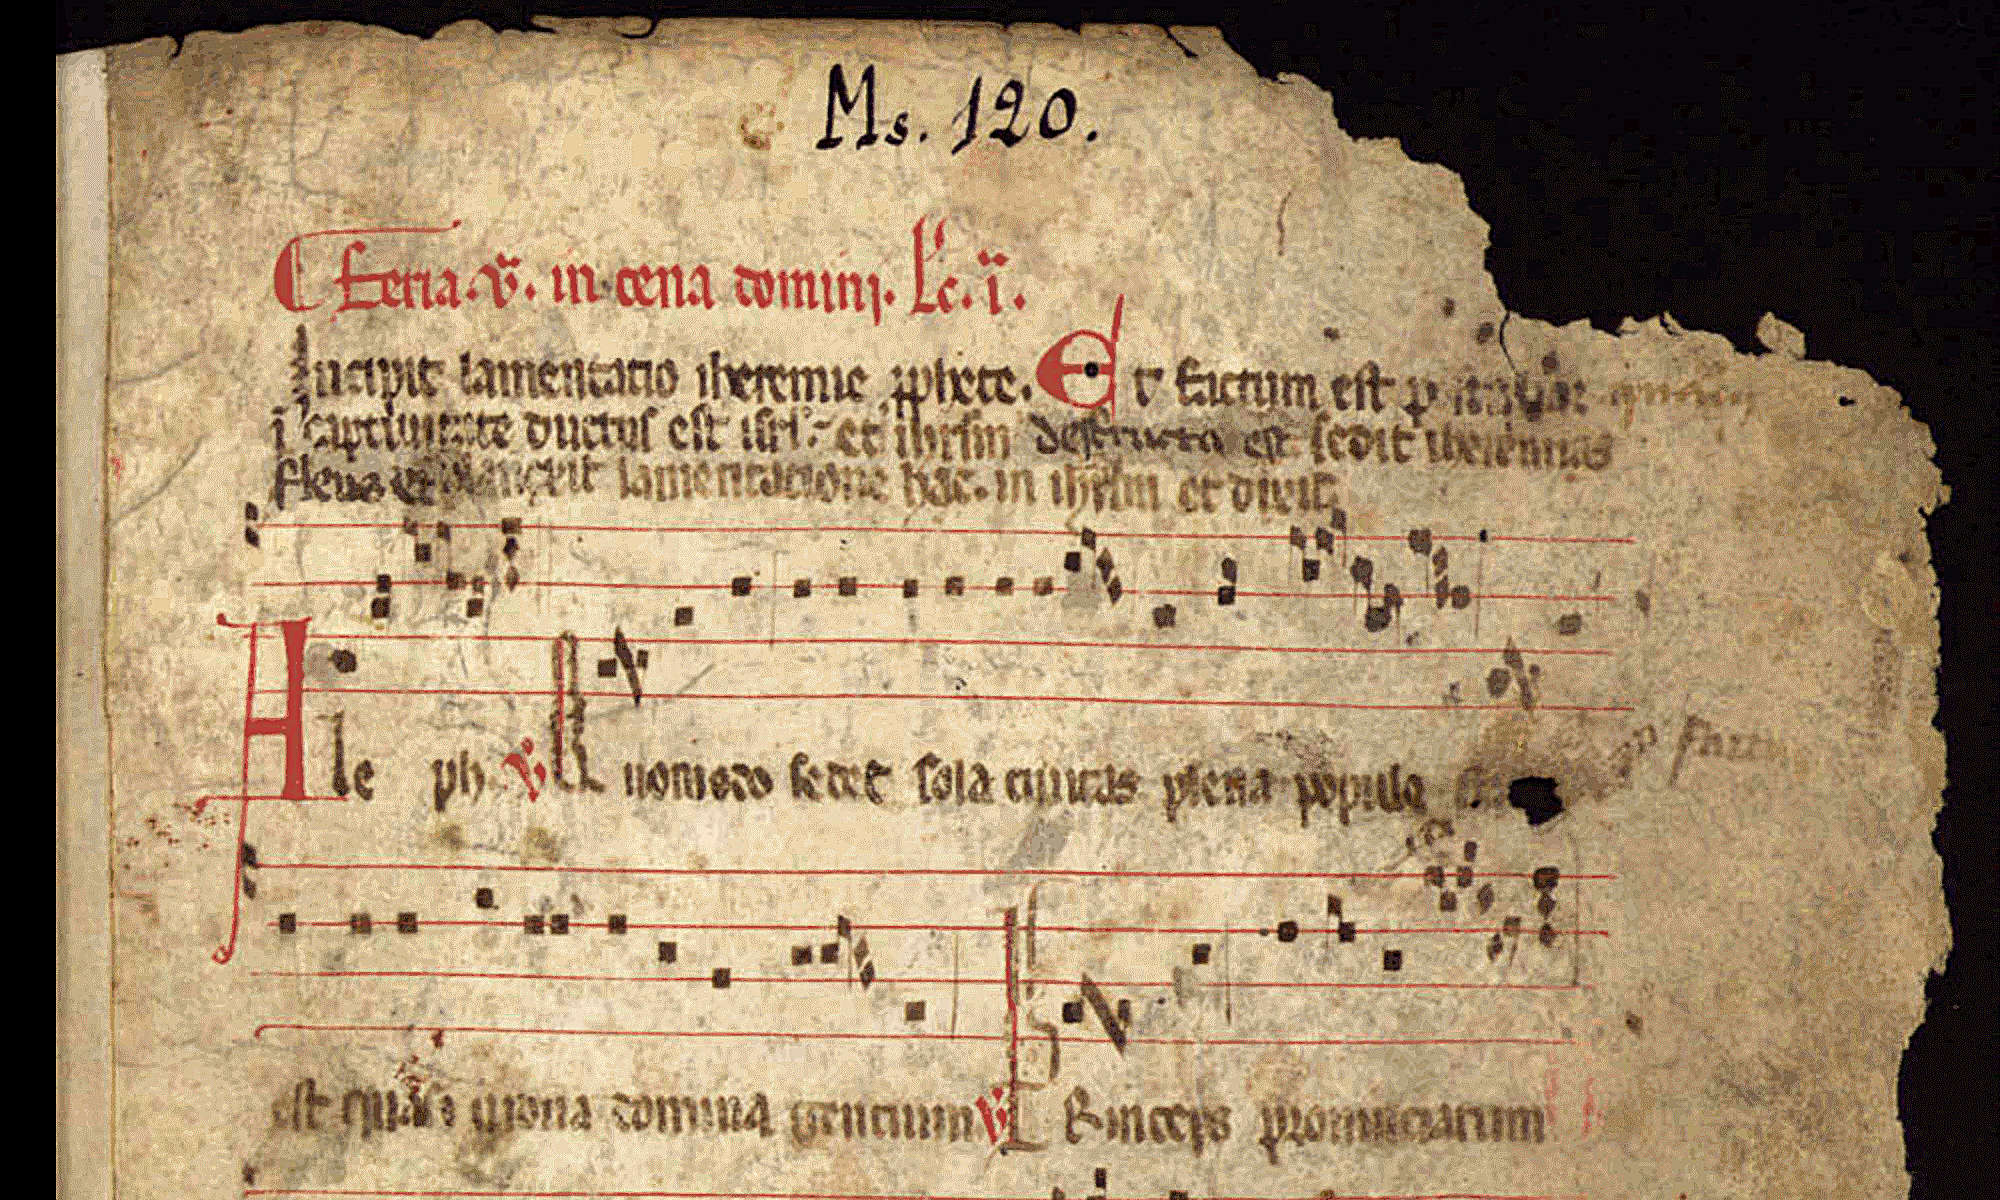 Ms. 120.
Feria. v. in cena domini. Lc. i.
Incipit lamentatio iheremie pphete. Et factum est p
i captiuitate ductus est isrl. et ihrlm destructa est sedit iheremias
flens et planxit lamentatione hac. in ihrlm et dixit
Ale ph v Quomodo sedet sola ciuitas plena populo
est quasi uidua domina gentium v Princeps prouinciarum